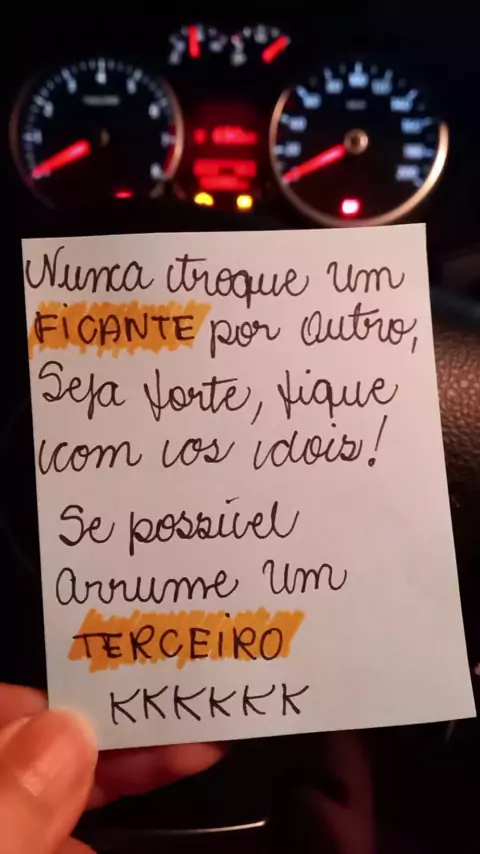 Nunca troque um
FICANTE por outro,
Seja forte, fique
com os dois!
Se possível
arrume um
TERCEIRO
KKKKKK